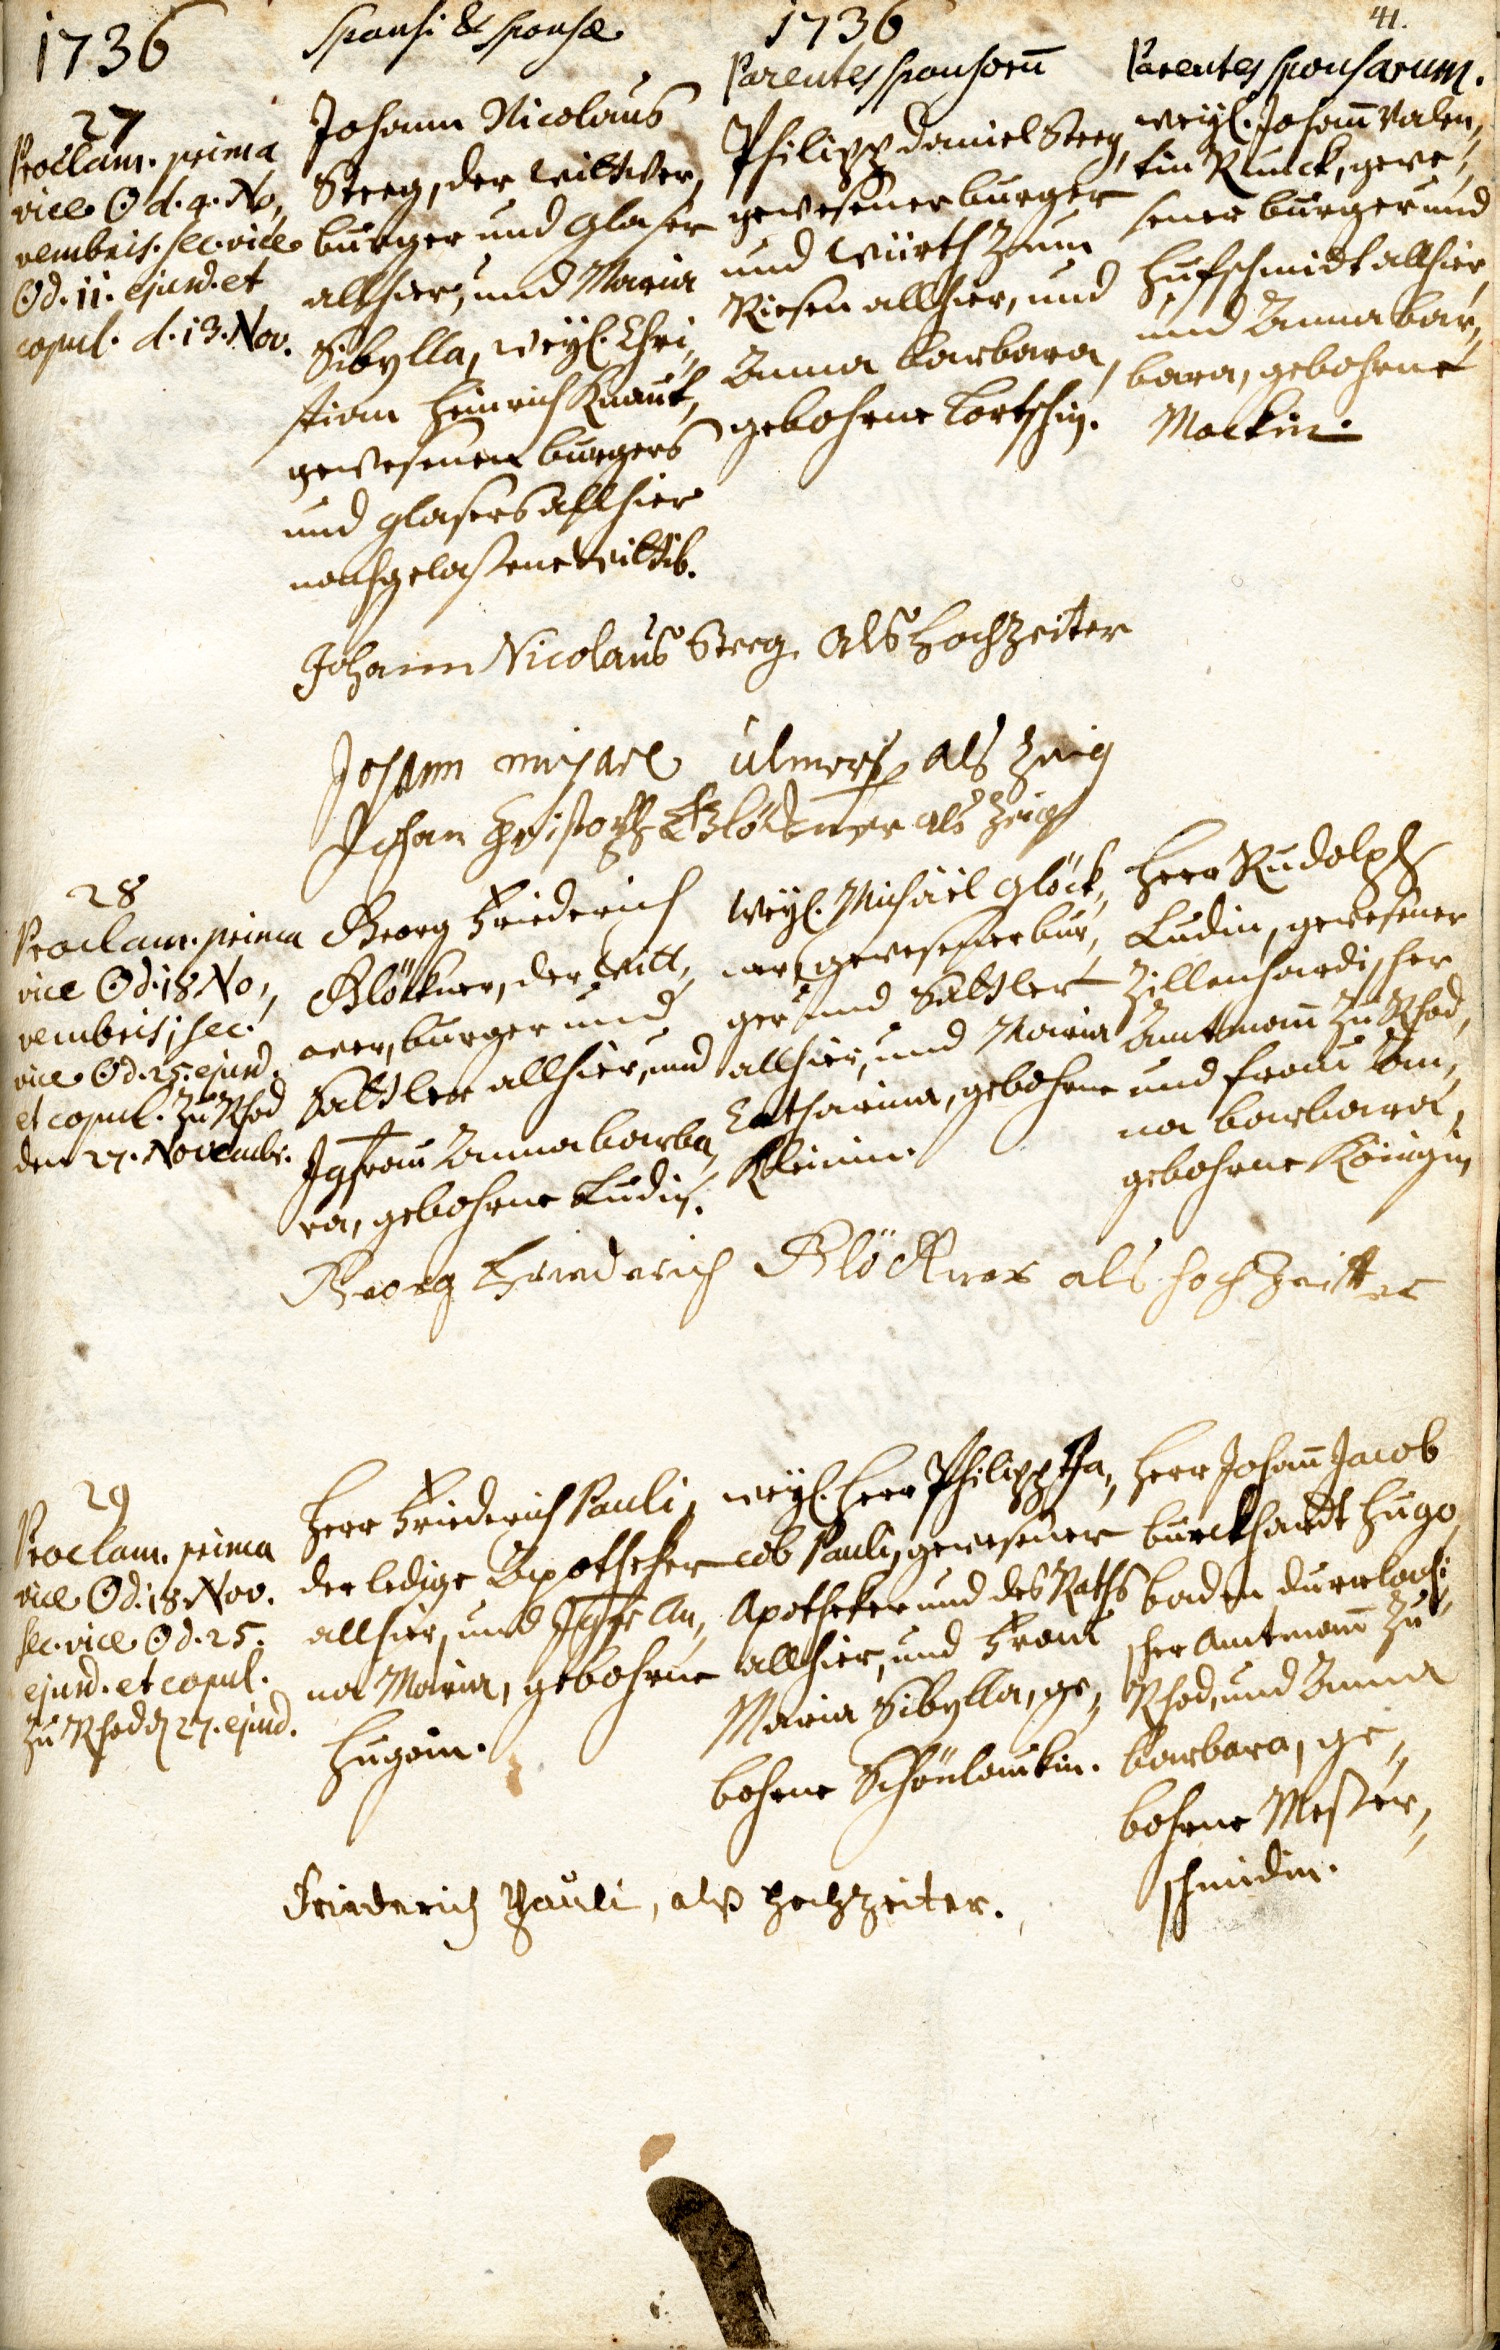 41.
1736
Sponsi & sponsæ
1736
Parentes sponsorū
Parentes sponsarum.
27
Proclam. prima
vice ☉ d. 4. No„
vembris. sec. vice
☉ d. 11. ejusd. et
copul. d. 13. Nov.
Johann Nicolaus
Steeg, der wittwer,
burger und glaser
allhier, und Maria
Sibylla, weyl. Chri„
stian Heinrich Knaut,
gewesenen burgers
und glasers allhier
nachgelaßene wittib.
Philipp Daniel Steeg,
gewesener burger
und Würth Zum
Riesen allhier, und
Anna Barbara,
gebohrne
weyl. Johañ Valen„
tin Runck, gewe„
sener burger und
Hufschmidt allhier,
und Anna Bar„
bara, gebohrne
Mockin.
Johann Nicolaus Steeg als Hochzeiter
Johann michael ulmer als zeig
Johan Christoph Glöckner als Zeig
28
Proclam. prima
vice ☉ d. 18 No„
vembris; sec.
vice ☉ d. 25. ejusd.
et copul. zu Rhod
den 27. Novembr.
Georg Friederich
Glöckner, der Witt„
wer, burger und
Sattler allhier, und
Jgfrau Anna Barba„
ra, gebohrne Ludin.
Weyl. Michaël Glöck„
ner, gewesener bur„
ger und Sattler
allhier, und Maria
Catharina, gebohrne
Kleinin.
Herr Rudolph
Ludin, gewesener
Zillenhardischer
Amtmañ zu Rhod,
und Frau An„
na Barbara,
gebohrne Königin
Georg Friederich Glöckner als hochzeitter
29
Proclam. prima
vice ☉ d. 18. Nov.
sec. vice ☉ d. 25.
ejusd. et copul.
zu Rhod d 27. ejusd.
Herr Friederich Pauli,
der ledige Apotheker
allhier, und Jgfr An„
na Maria, gebohrne
Hugoin.
weyl. Herr Philipp Ja„
cob Pauli, gewesener
Apotheker und des Raths
allhier, und Frau
Maria Sibylla, ge„
bohrne Schönlaukin.
Herr Johañ Jacob
Burckhardt Hugo,
baden durrlachi„
scher Amtmañ zu
Rhod, und Anna
Barbara, ge„
bohrne Meßer„
schmidin.
Friederich Pauli, alß Hochzeiter.